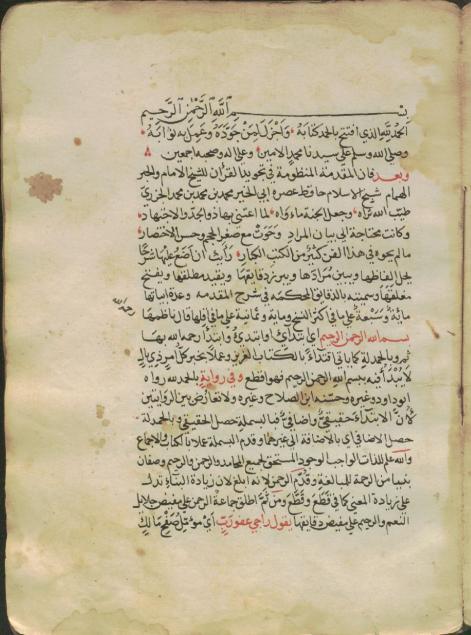 بسم الله الرحمن الرحيم
الحمد لله الذي افتتح بالحمد كتابه واجزل لمن جوده وعمل به ثوابه
وصلى الله وسلم على سيدنا محمد الامين وعلى اله وصحبه اجمعين
وبعد فان المقدمة المنظومة في تجويد القران للشيخ الامام والحبر
الهمام شيخ الاسلام حافظ عصره ابي الخير محمد بن محمد بن محمد الجزري
طيب الله ثراه وجعل الجنة ماواه لما اعتنى بها ذو الجد والاجتهاد
وكانت محتاجة الى بيان المراد وحوت مع صغر الحجم وحسن الاختصار
ما لم يحوه في هذا الفن كثير من الكتب الكبار رأيت ان اضع عليها شرحا
يحل الفاظها ويبين مرادها ويبرز دقايقها ويقيد مطلقها ويفتح
مغلقها وسميته بالدقايق المحكمه في شرح المقدمه وعدة ابياتها
مائة وسبعة على ما في اكثر النسخ وماية وثمانية على ما في اقلها قال ناظمها
رحمه الله
بسم الله الرحمن الرحيم اي ابتدائ او ابتدئ وابتدأ رحمه الله بها
ثم بالحمدلة كما ياتي اقتداء بالكتاب العزيز وعملا بخبر كل امر ذي بال
لا يبدأ فيه ببسم الله الرحمن الرحيم فهو اقطع وفي رواية بالحمد لله رواه
ابو داود وغيره وحسنه ابن الصلاح وغيره ولا تعارض بين الروايتين
لأن الابتداء حقيقي واضافي فبالبسملة حصل الحقيقي وبالحمدلة
حصل الاضافي اي بالاضافة الى غيرهما وقدم البسملة عملا بالكتاب والاجماع
والله علم للذات الواجب الوجود المستحق لجميع المحامد والرحمن والرحيم وصفان
بنيا من الرحمة للمبالغة وقدم الرحمن لانه ابلغ لان زيادة البناء تدل
على زيادة المعنى كما في قطع وقطع ومن ثم اطلق جماعة الرحمن على مفيض جلايل
النعم والرحيم على مفيض دقايقها يقول راجي عفو رب اي مؤمل صفح مالك